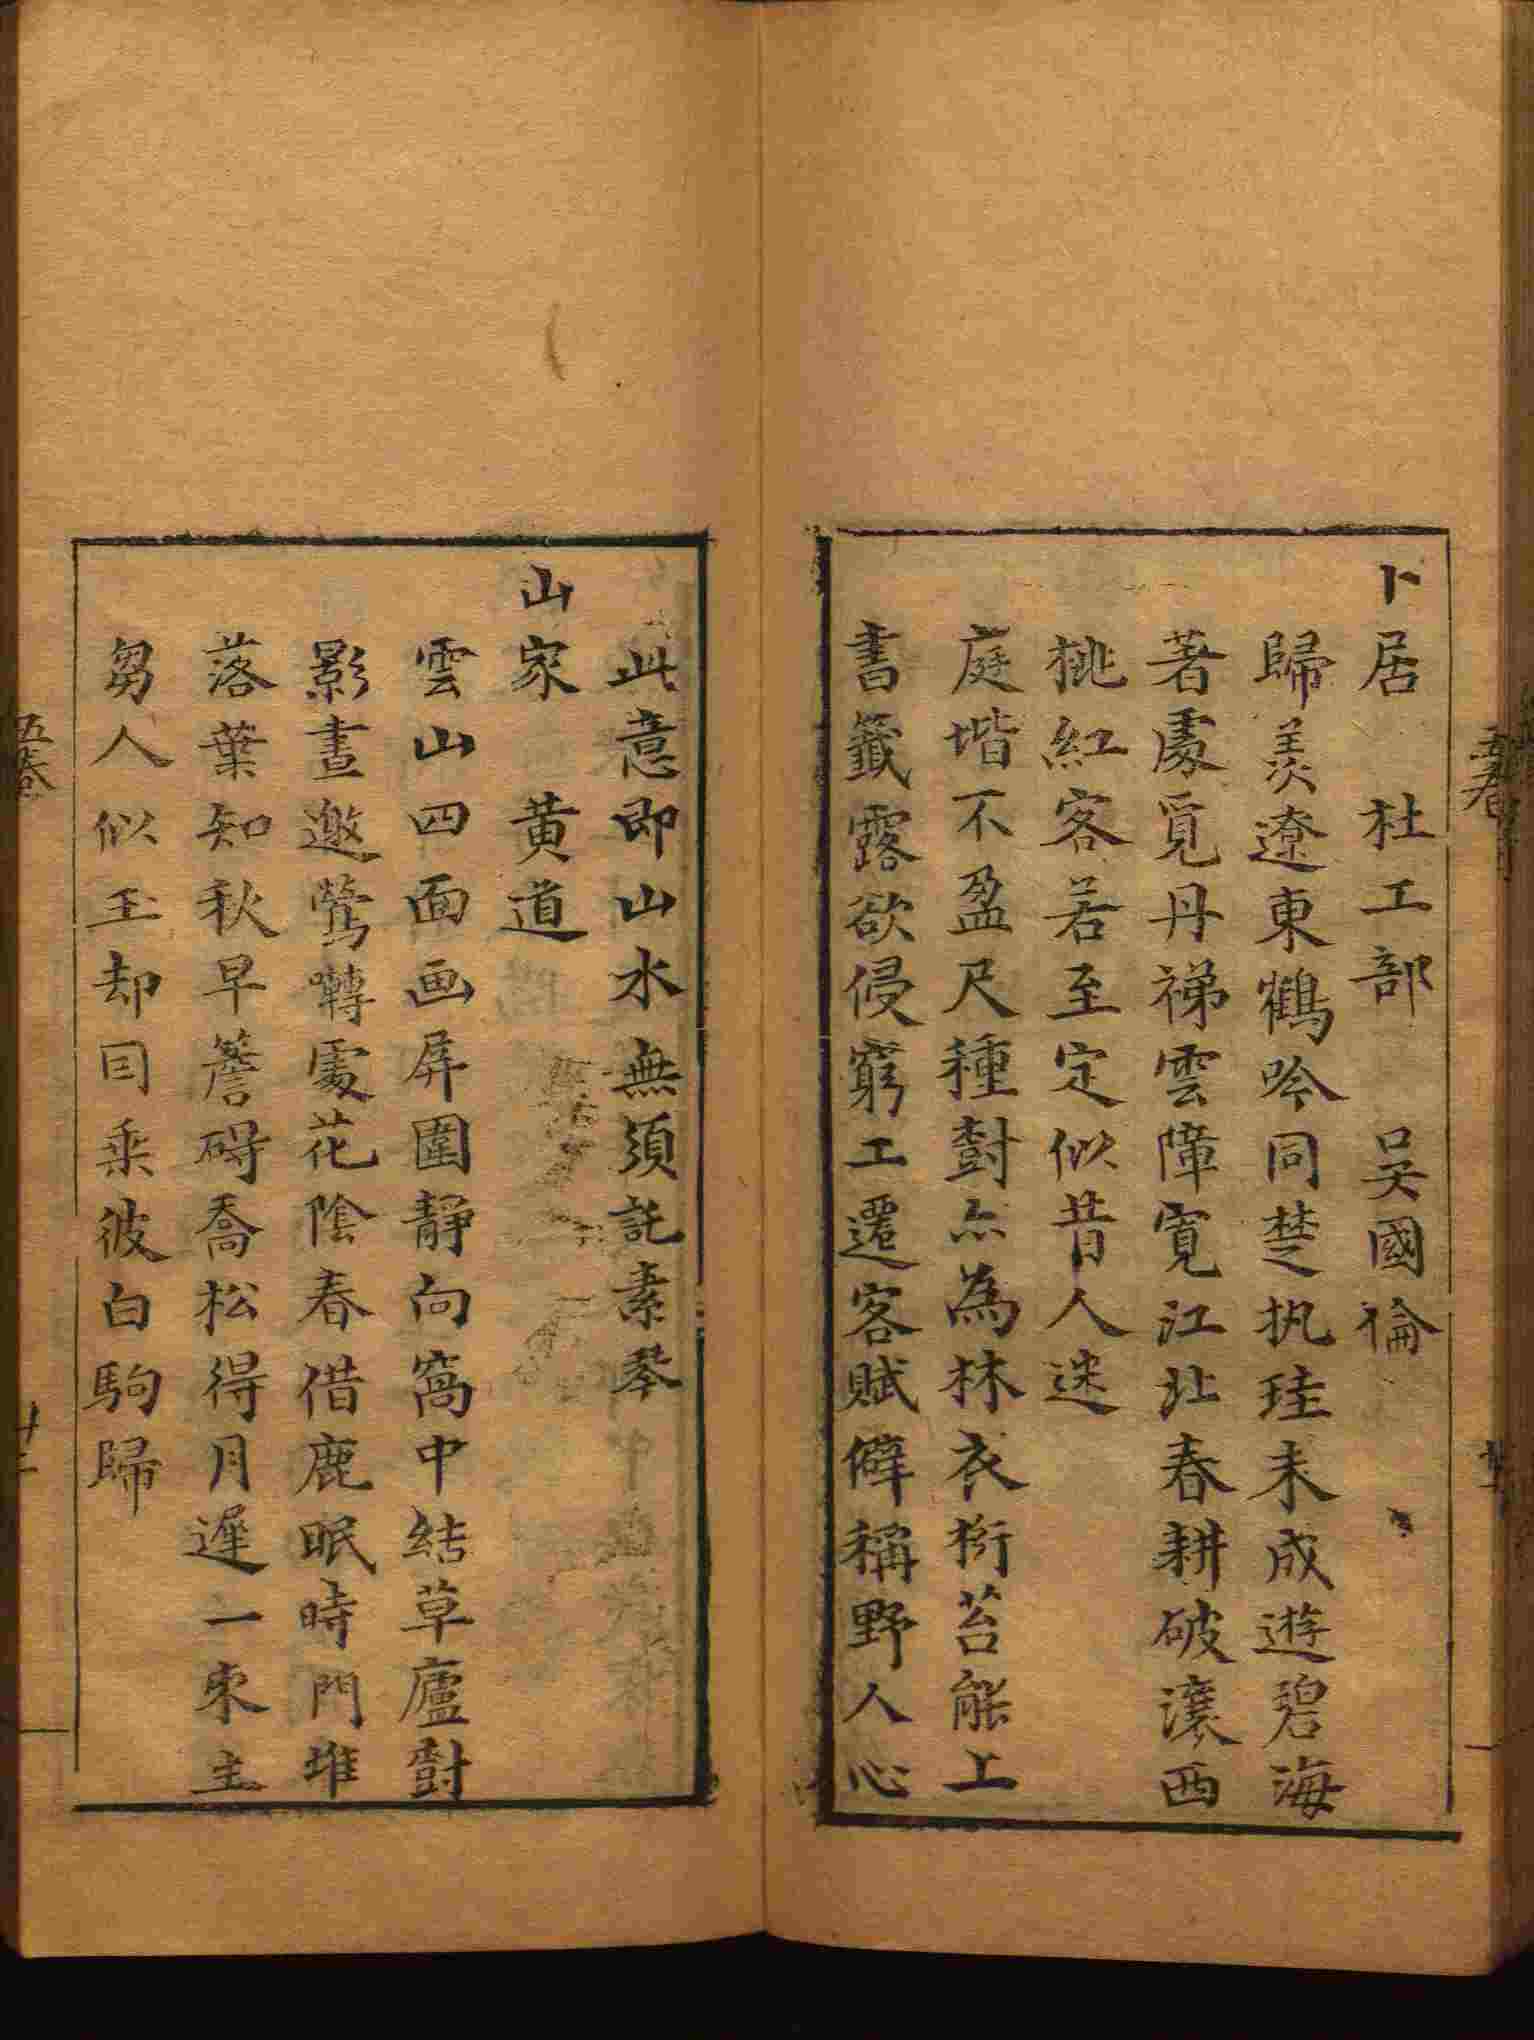 卜居　杜工部　吳國倫
歸羨遼東鶴吟同楚执珪未成遊碧海
著䖏覓丹梯雲障寬江北春耕破瀼西
桃紅客若至定似昔人迷
庭堦不盈尺種對亦為林衣衎苔能上
書籤露欲侵窮工遷客賦僻稱野人心
此意即山水無須託素琴
山家　黄道
雲山四面画屏圍靜向窩中結草廬對
影晝邀鶯囀䖏花陰春借鹿眠時門堆
落葉知秋早簷碍喬松得月遲一束主
芻人似玉却囙乘彼白駒歸
五卷
廿二